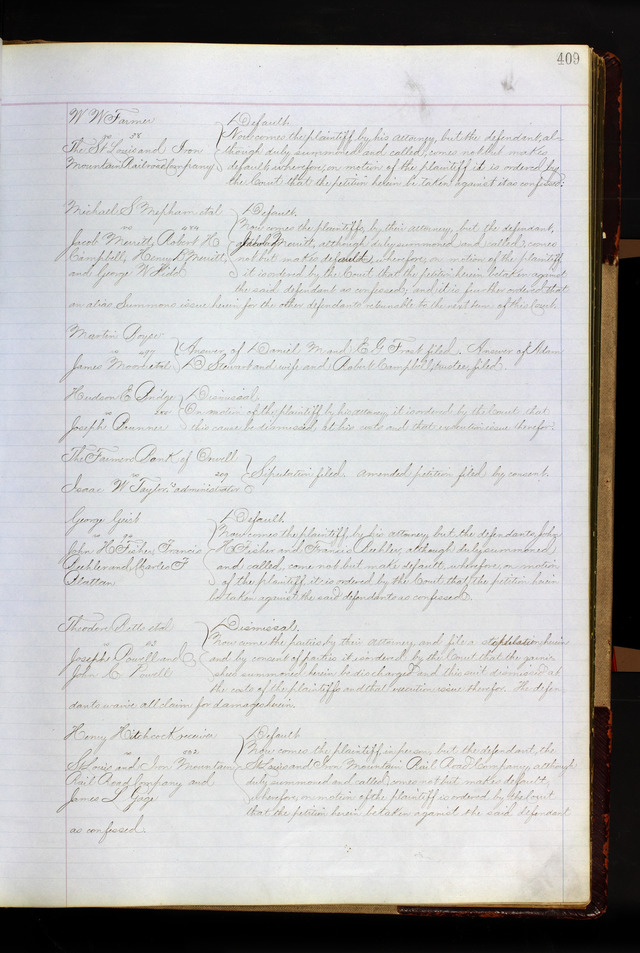 409
W W Farmer } Default.
vs 38 Now comes the plaintiff by his attorney, but the defendant, al-
The St. Louis and Iron though duly summoned and called, comes not but makes
Mountain Railroad Company default, wherefore, on motion of the plaintiff it is ordered by
the Court that the petition herein be taken against it as confessed.
Michael S Mepham et al } Default.
vs Now come the plaintiffs, by their attorney, but the defendant,
Jacob Merritt, Robert H Jacob Merritt, although duly summoned and called, comes
Campbell, Henry D Merritt, not but makes default, wherefore, on motion of the plaintiffs
and George W it is ordered by the Court that the petition herein be taken against
the said defendant as confessed; and it is further ordered that
an alias Summons issue herein for the other defendants returnable to the next term of this Court.
Martin
vs } Answer of Daniel M and E G Frost filed. Answer of Adam
James Wood et al D Stewart and wife and Robert Campbell trustee, filed.
Hudson E Bridge } Dismissal
vs On motion of the plaintiff by his attorney it is ordered by the Court that
Joseph this cause be dismissed at his costs and that execution issue therefor.
The Farmers Bank of
vs 209 } Stipulation filed. Amended petition filed by consent.
Isaac W Taylor, administrator
George } Default.
vs Now comes the plaintiff, by his attorney, but the defendants, John
John H Fisher, Francis H Fisher and Francis although duly summoned
and Charles F and called, come not but make default; wherefore, on motion
of the plaintiff, it is ordered by the Court that the petition herein
be taken against the said defendants as confessed.
Theodore et al } Dismissal.
vs Now come the parties by their attorneys and file a stipulation herein
Joseph Powell and and by consent of parties it is ordered by the Court that the garni-
John C Powell shee summoned herein be discharged and this suit dismissed at
the costs of the plaintiffs and that execution issue therefor. The defen-
dants waive all claim for damages herein.
Henry Hitchcock receiver } Default
vs Now comes the plaintiff in person, but the defendant, the
St Louis and Iron Mountain St Louis and Iron Mountain Rail Road Company, although
Rail Road Company and duly summoned and called, comes not but makes default;
James L Gage wherefore, on motion of the plaintiff is ordered by the Court
that the petition herein be taken against the said defendant
as confessed.